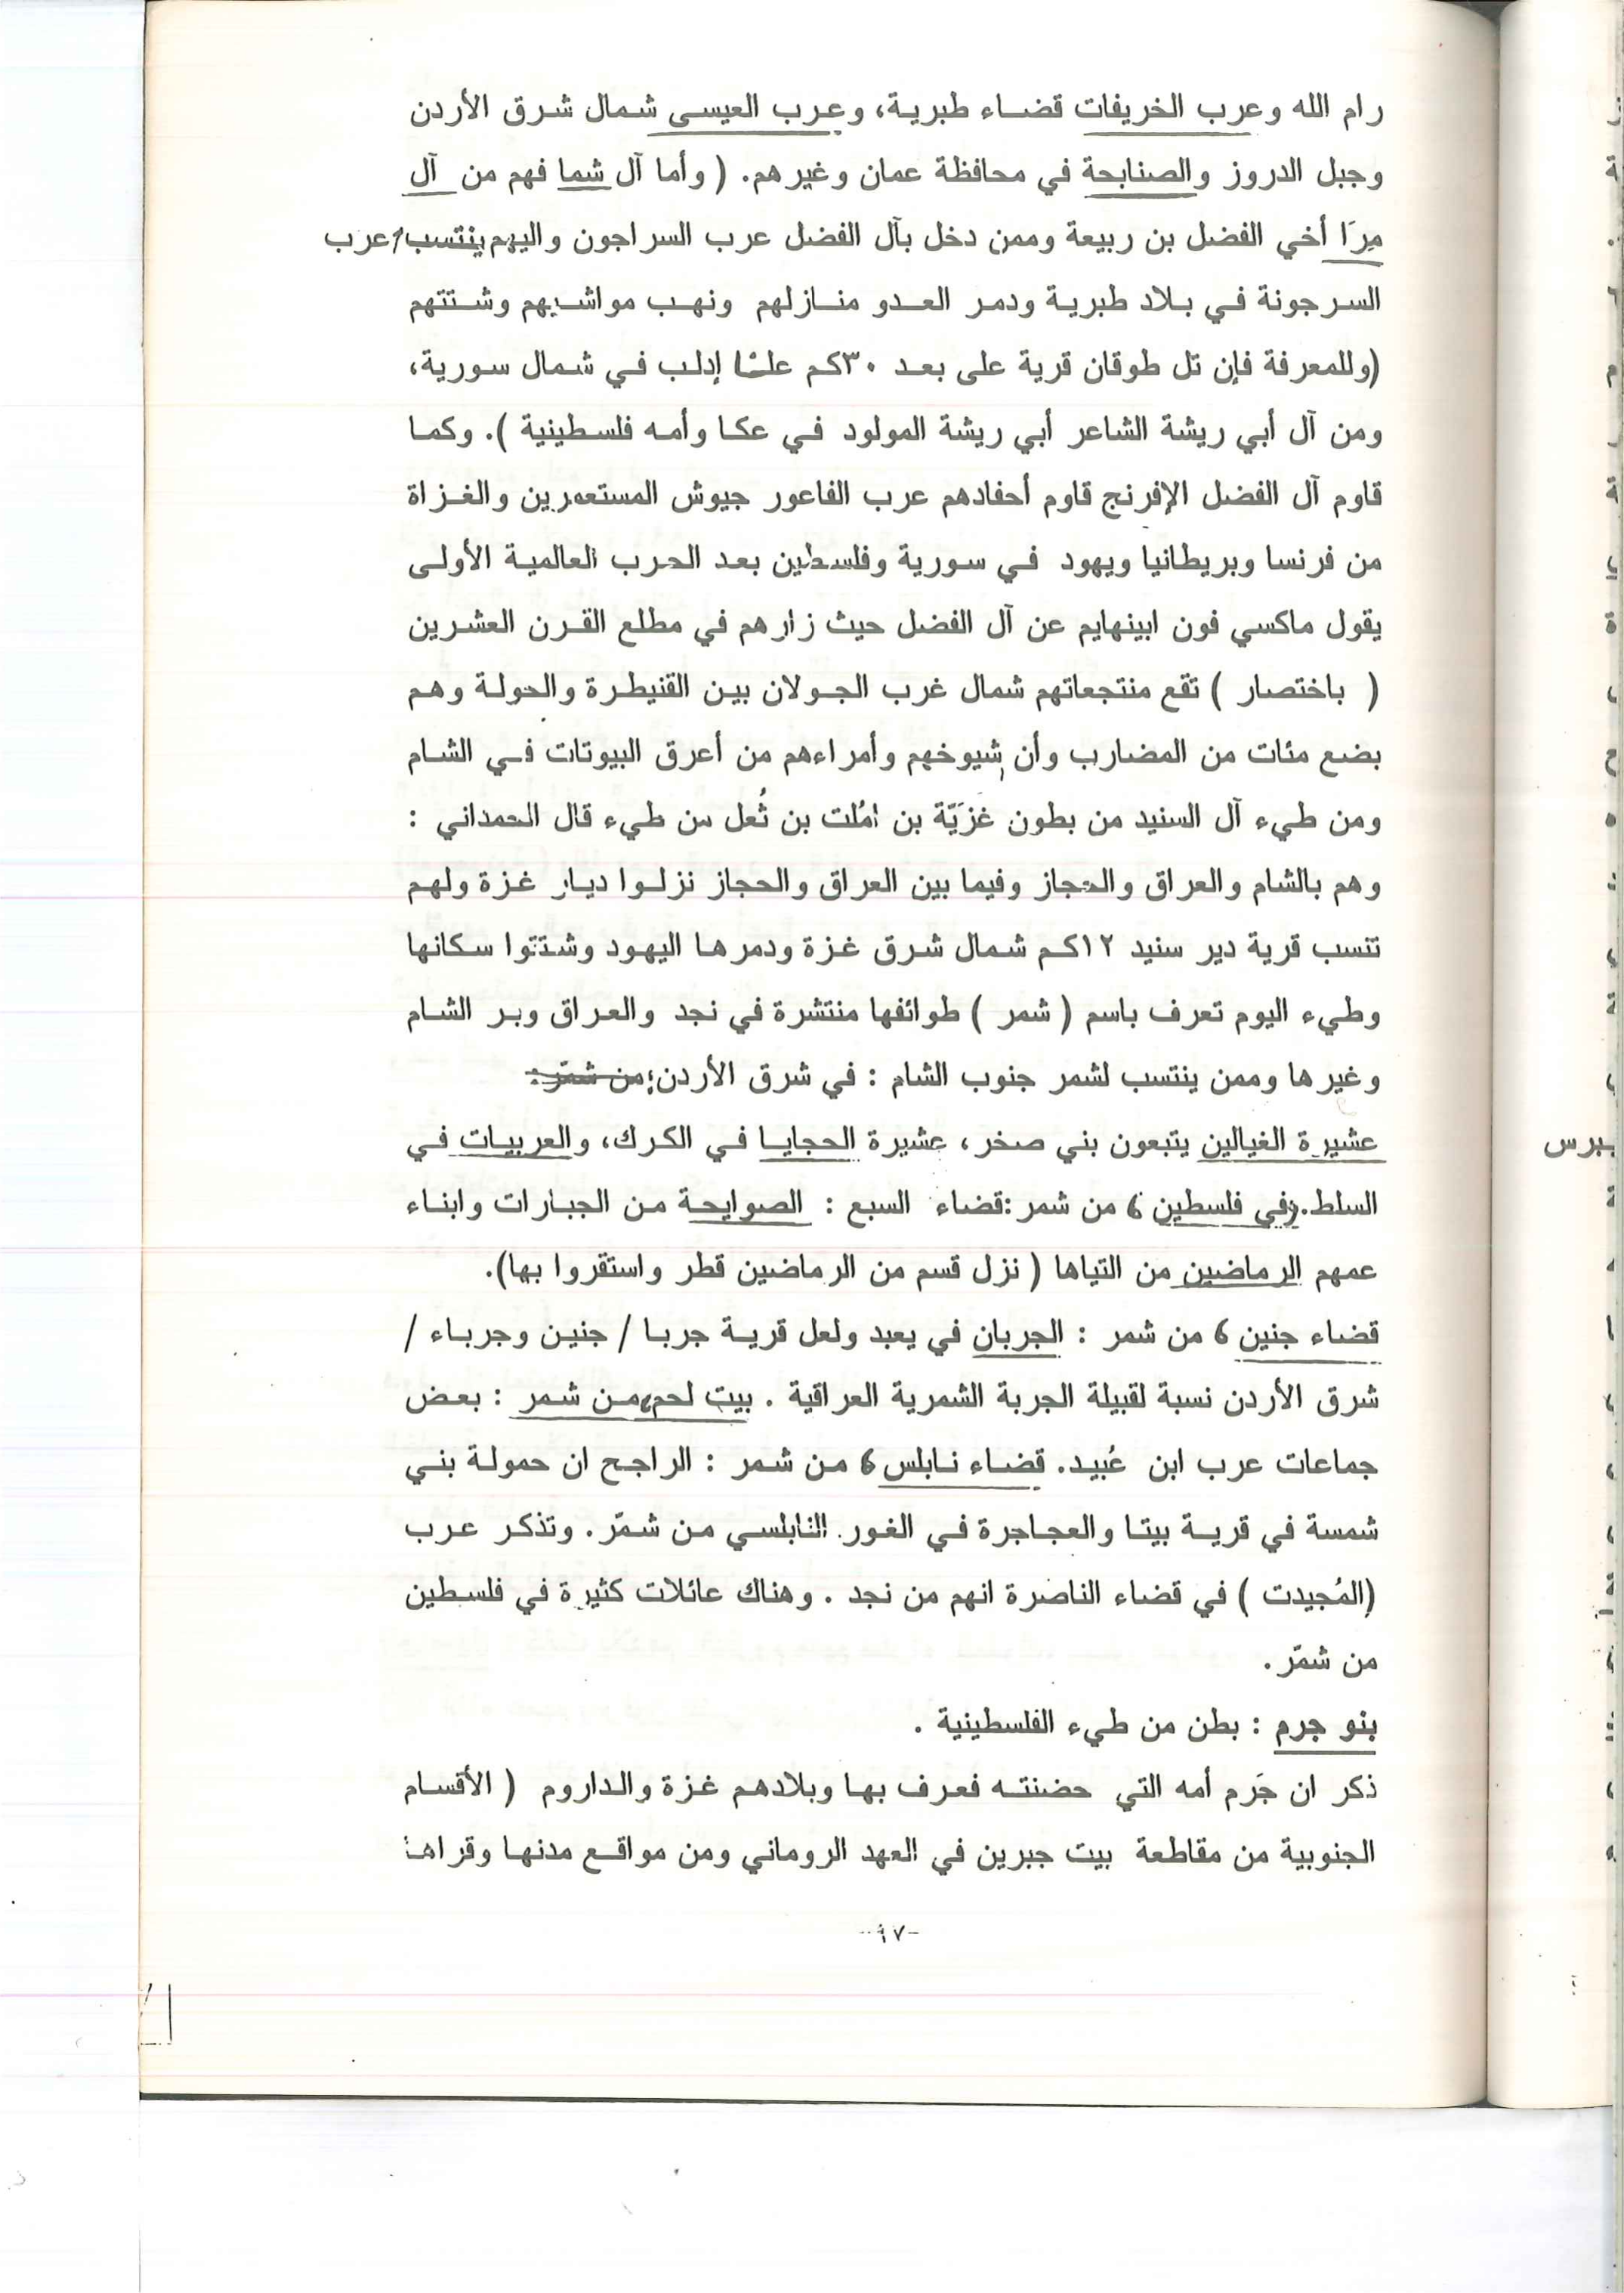 رام الله وعرب الخريفات قضاء طبرية، وعرب العيسى شمال شرق الأردن
وجبل الدروز والصنابحة في محافظة عمان وغيرهم. ( وأما آل شما فهم من آل
مِرَا أخي الفضل بن ربيعة وممن دخل بآل الفضل عرب السراجون واليهم ينتسب عرب
السرجونة في بلاد طبرية ودمر العدو منازلهم ونهب مواشيهم وشتتهم
(وللمعرفة فإن تل طوقان قرية على بعد ٣٠كم إدلب في شمال سورية،
ومن آل أبي ريشة الشاعر أبي ريشة المولود في عكا وأمه فلسطينية ). وكما
قاوم آل الفضل الإفرنج قاوم أحفادهم عرب الفاعور جيوش المستعمرين والغزاة
من فرنسا وبريطانيا ويهود في سورية وفلسطين بعد الحرب العالمية الأولى
يقول ماكسي فون ابينهايم عن آل الفضل حيث زارهم في مطلع القرن العشرين
( باختصار ) تقع منتجعاتهم شمال غرب الجولان بين القنيطرة والحولة وهم
بضع مئات من المضارب وأن شيوخهم وأمراءهم من أعرق البيوتات في الشام
ومن طيء آل السنيد من بطون غزَيّة بن امُلت بن ثُعل من طيء قال الحمداني :
وهم بالشام والعراق والحجاز وفيما بين العراق والحجاز نزلوا ديار غزة ولهم
تنسب قرية دير سنيد ١٢كم شمال شرق غزة ودمرها اليهود وشتتوا سكانها
وطيء اليوم تعرف باسم ( شمر ) طوائفها منتشرة في نجد والعراق وبر الشام
وغيرها وممن ينتسب لشمر جنوب الشام : في شرق الأردن؛ من شمّر :
عشيرة الغيالين يتبعون بني صخر، عشيرة الحجايا في الكرك، والعربيات في
السلط. وفي فلسطين ، من شمر : قضاء السبع : الصوايحة من الجبارات وابناء
عمهم الرماضين من التياها ( نزل قسم من الرماضين قطر واستقروا بها).
قضاء جنين ، من شمر : الجربان في يعبد ولعل قرية جربا / جنين وجرباء /
شرق الأردن نسبة لقبيلة الجربة الشمرية العراقية . بيت لحم، من شمر : بعض
جماعات عرب ابن عُبيد. قضاء نابلس ، من شمر : الراجح ان حمولة بني
شمسة في قرية بيتا والعجاجرة في الغور النابلسي من شمّر. وتذكر عرب
(المُجيدت ) في قضاء الناصرة انهم من نجد . وهناك عائلات كثيرة في فلسطين
من شمّر .
بنو جرم : بطن من طيء الفلسطينية .
ذكر ان جَرم أمه التي حضنته فعرف بها وبلادهم غزة والداروم ( الأقسام
الجنوبية من مقاطعة بيت جبرين في العهد الروماني ومن مواقع مدنها وقراها
-٩٧-